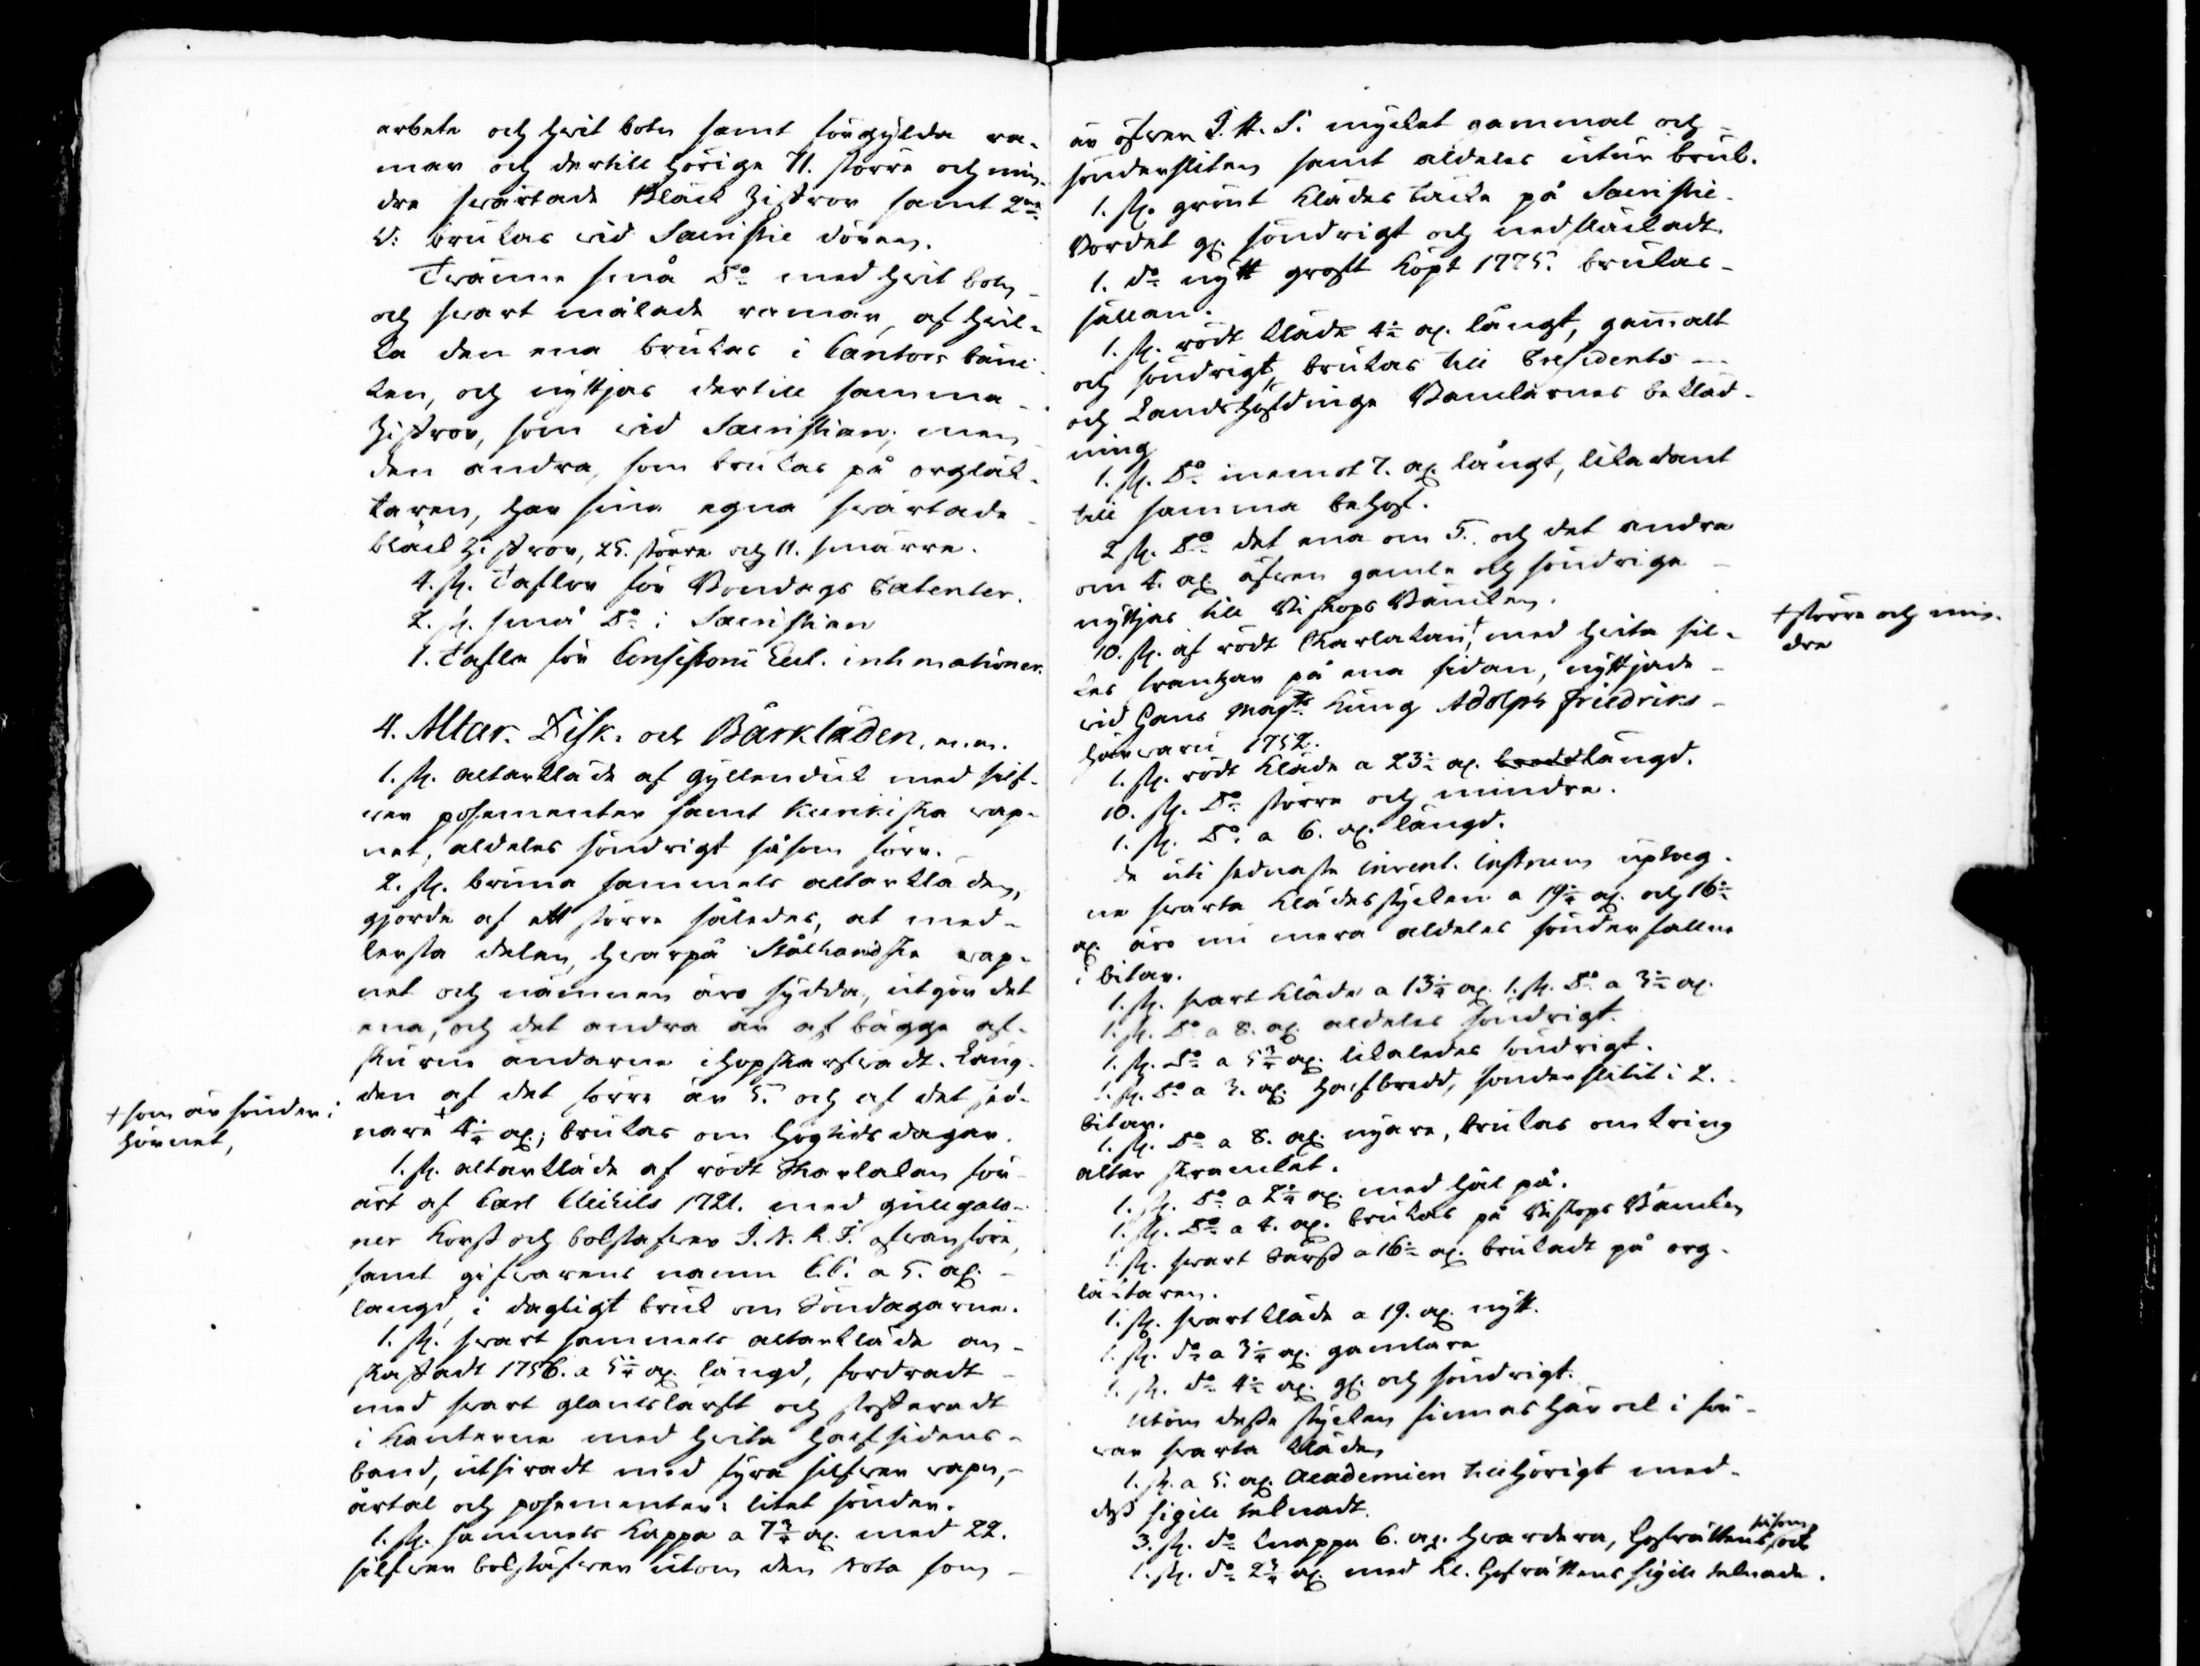 arbete och hvit botn samt förgylda ra-
mar och dertill hörige 71. större och min-
dre svärtade Bläck Ziffror samt 2ne
V: brukas vid Sacristie dören.
Tvänne små Do med hvit botn
och svart målade ramar, af hvil-
ka den ena brukas i Cantors bänc-
ken, och nyttjas dertill samma
Ziffror, som vid Sacristian; men
den andra, som brukas på orgläk-
taren, har sina egna svärtade
bläck Ziffror, 25. större och 11. smärre.
4. st. Taflor för Bondags Patenter.
2. st. små Do i Sacristian
1. Tafla för Consistorii Eccl. intimationer.
4. Altar. Disk. och Bårkläden, m.m.
1. st. altarkläde af gyllenduk med silf-
ver posementer samt Kurkiska vap-
net, aldeles söndrigt såsom förr.
2. st. bruna sammets altarkläden,
gjorde af ett större således, at med-
lersta delen, hvarpå Stålhandske vap-
net och namnen äro sydda, utgör det
ena, och det andra är af bägge af-
skurne ändarne ihopskarfvadt. Läng-
den af det förre är 5. och af det sed-
nare + 4 1/4 al; brukas om högtids dagar.
+ som är sönder i
hörnet,
1. st. altarkläde af rödt Skarlakan för-
ärt af Carl Merkils 1721. med gullgalo-
ner Korss och bokstafver I. N. R. I. ofvanföre,
samt gifvarens namn C.C. a 5. al.
längd, i dagligt bruk om Söndagarne.
1. st. svart sammets altarkläde an-
skaffadt 1756. a 5 1/4 al. längd, fordradt
med svart glantslärft och stofferadt
i kanterne med hvita halfsidens-
band, utsiradt med fyra silfver vapn,
årtal och posementer: litet sönder.
1. st. sammets Kappa a 7 3/4 al. med 22.
silfver bokstäfver utom den Nota som
är öfver I. H. S. mycket gammal och
söndersliten samt aldeles utur bruk.
1. st. grönt Klädes täcke på Sacristie-
Bordet gl. söndrigt och nedfläckadt.
1. do nytt groft köpt 1775. brukas
sällan.
1. st. rödt kläde 4 1/2 al. långt, gammalt
och söndrigt, brukas till Presidents
och Landshöfdinge Bänkarnes bekläd-
ning
1. st. Do inemot 7. al. långt, likadant
till samma behof.
2 st. Do det ena om 5. och det andra
om 4. al. äfven gamla och söndriga
nyttjas till Biskops Bänken.
10. st. af rödt Skarlakan+, med hvita sil-
+ större och min-
dre
kes frantzar på ena sidan, nyttjade
vid Hans Majts Kung Adolph Friedrics
härvaru 1752.
1. st. rödt Kläde a 23 1/2 al. bredd längd.
10. st. Do större och mindre.
1. st. Do a 6. al. längd.
de uti sednaste invent. instrum uptag-
ne svarta klädesstycken a 19 1/4 al. och 16 1/2
al. äro nu mera aldeles sönderfallne
i bitar.
1. st. svart Kläde a 13 1/4 al. 1. st. Do a 3 1/2 al.
1. st. Do a 8. al. aldeles söndrigt.
1. st. Do a 5 3/4 al. likaledes söndrigt.
1. st. Do a 3. al. half bredd, sönderslitit i 2.
bitar.
1. st. Do a 8. al. nyare, brukas omkring
altar skranket.
1. st. Do a 2 1/4 al. med hål på.
1. st. Do a 4. al. brukas på Biskops Bänken
1. st. svart Sarss a 16 1/2 al. brukadt på org-
läktaren.
1. st. svart kläde a 19. al. nytt.
1. st. do a 3 1/4 al. gamlare
1. st. do 4 1/2 al. gl. och söndrigt.
Utom desse stycken finnas här ock i för-
var svarta kläden
1. st. a 5. al. Academien tillhörigt med
dess sigill teknadt.
3. st. do knappa 6. al. hvardera, Hofrättens såsom och
1. st. do 2 3/4 al. med Kl. Hofrättens sigill teknade.